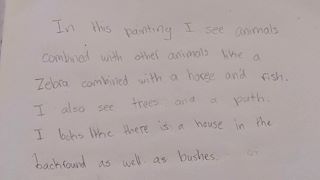 In this painting I see animals
combined with other animals like a
Zebra combined with a horse and fish.
I also see trees and a path.
I looks like there is a house in the
backfound as well as bushes.